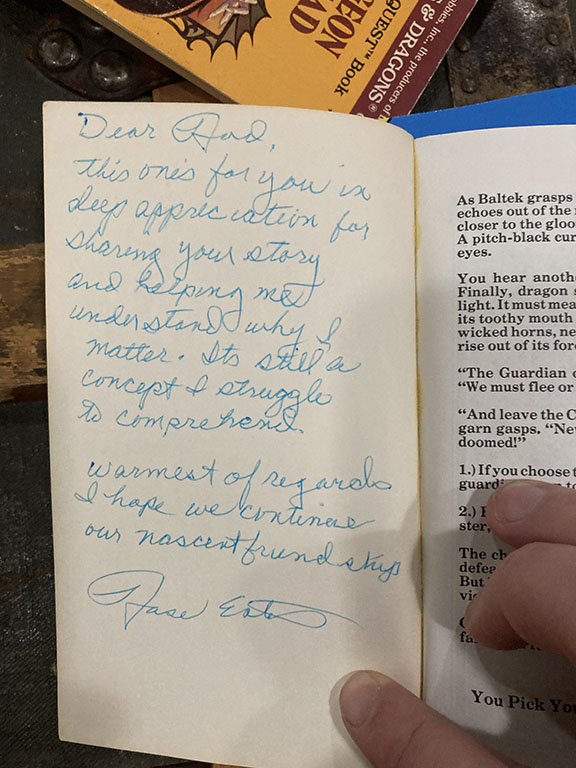 GEON
AD
QUEST™ Book
& DRAGONS®
obbies, Inc., the producers of
Dear Rod,
this one's for you in
deep appreciation for
sharing your story
and helping me
understand why I
matter. Its still a
concept I struggle
to comprehend.
warmest of regards
I hope we continue
our nascent friendship
Rose Estes
As Baltek grasps
echoes out of the
closer to the gloo
A pitch-black cur
eyes.
You hear anoth
Finally, dragon s
light. It must mea
its toothy mouth
wicked horns, ne
rise out of its for
"The Guardian o
"We must flee or
"And leave the C
garn gasps. "Nev
doomed!"
1.) If you choose t
guardi
2.)
ster,
The ch
defea
But
vic
fa
You Pick You